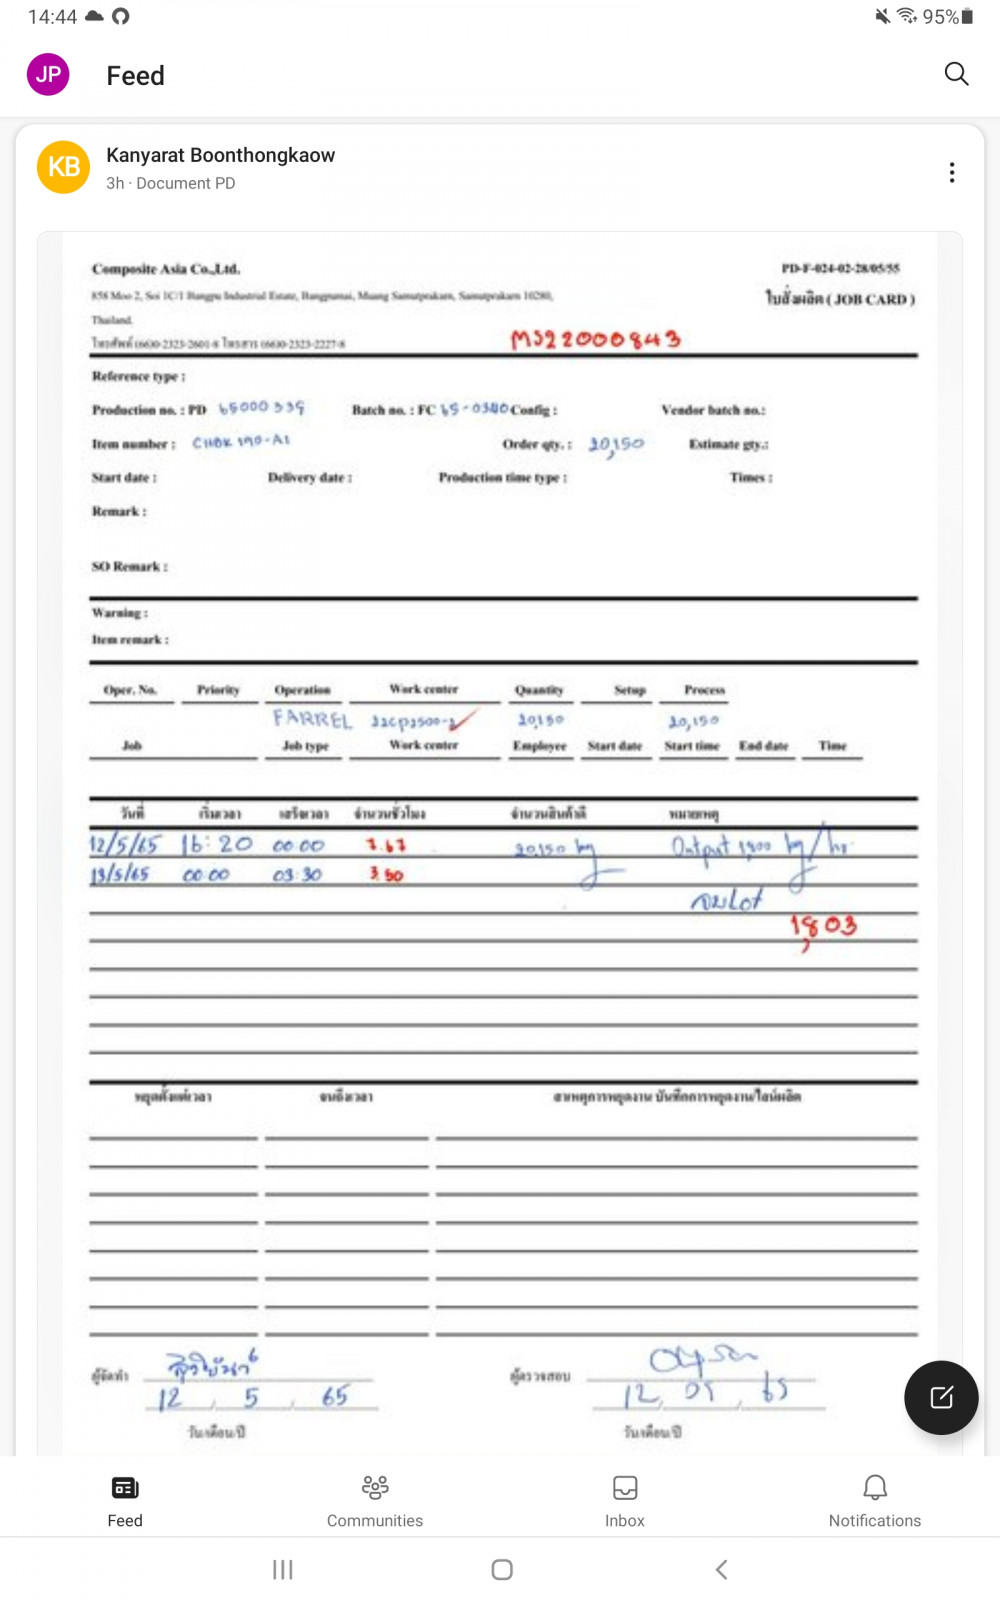 14:44 95%
JP Feed
KB Kanyarat Boonthongkaow
3h · Document PD
Composite Asia Co.,Ltd. PD-F-024-02-28/05/55
858 Moo 2, Soi 1C/1 Bangpu Industrial Estate, Bangpumai, Muang Samutprakarn, Samutprakarn 10280, ใบสั่งผลิต ( JOB CARD )
Thailand.
โทรศัพท์ (66)0-2323-2601-8 โทรสาร (66)0-2323-2227-8 MJ22000843
Reference type :
Production no. : PD 65000339 Batch no. : FC 65-0340 Config : Vendor batch no.:
Item number : Order qty. : 20,150 Estimate gty.:
Start date : Delivery date : Production time type : Times :
Remark :
SO Remark :
Warning :
Item remark :
Oper. No. Priority Operation Work center Quantity Setup Process
FARREL 22CP2500-2 20,150 20,150
Job Job type Work center Employee Start date Start time End date Time
วันที่ เริ่มเวลา เสร็จเวลา จำนวนชั่วโมง จำนวนสินค้าดี หมายเหตุ
12/5/65 16:20 00:00 7.67 20,150 kg Output 1,800 kg/hr.
13/5/65 00:00 03:30 3.50
จบLot
1,803
หยุดตั้งแต่เวลา จนถึงเวลา สาเหตุการหยุดงาน บันทึกการหยุดงาน/ไลน์ผลิต
ผู้จัดทำ ผู้ตรวจสอบ
12 , 5 , 65 12, 05 , 65
วัน/เดือน/ปี วัน/เดือน/ปี
Feed Communities Inbox Notifications